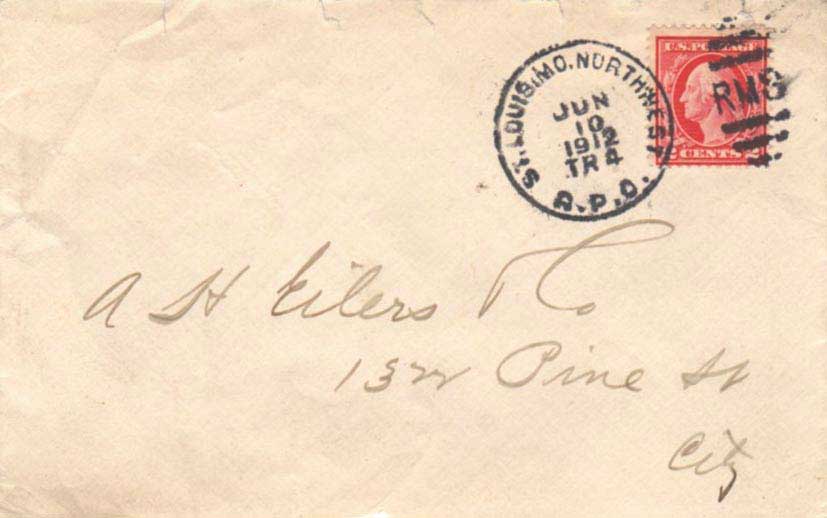 ST. LOUIS, MO. NORTHWEST
JUN
10
1912
TR 4
R.P.O.
U.S. POSTAGE
RMS
2 CENTS 2
A H Eilers & Co
1322 Pine St
City